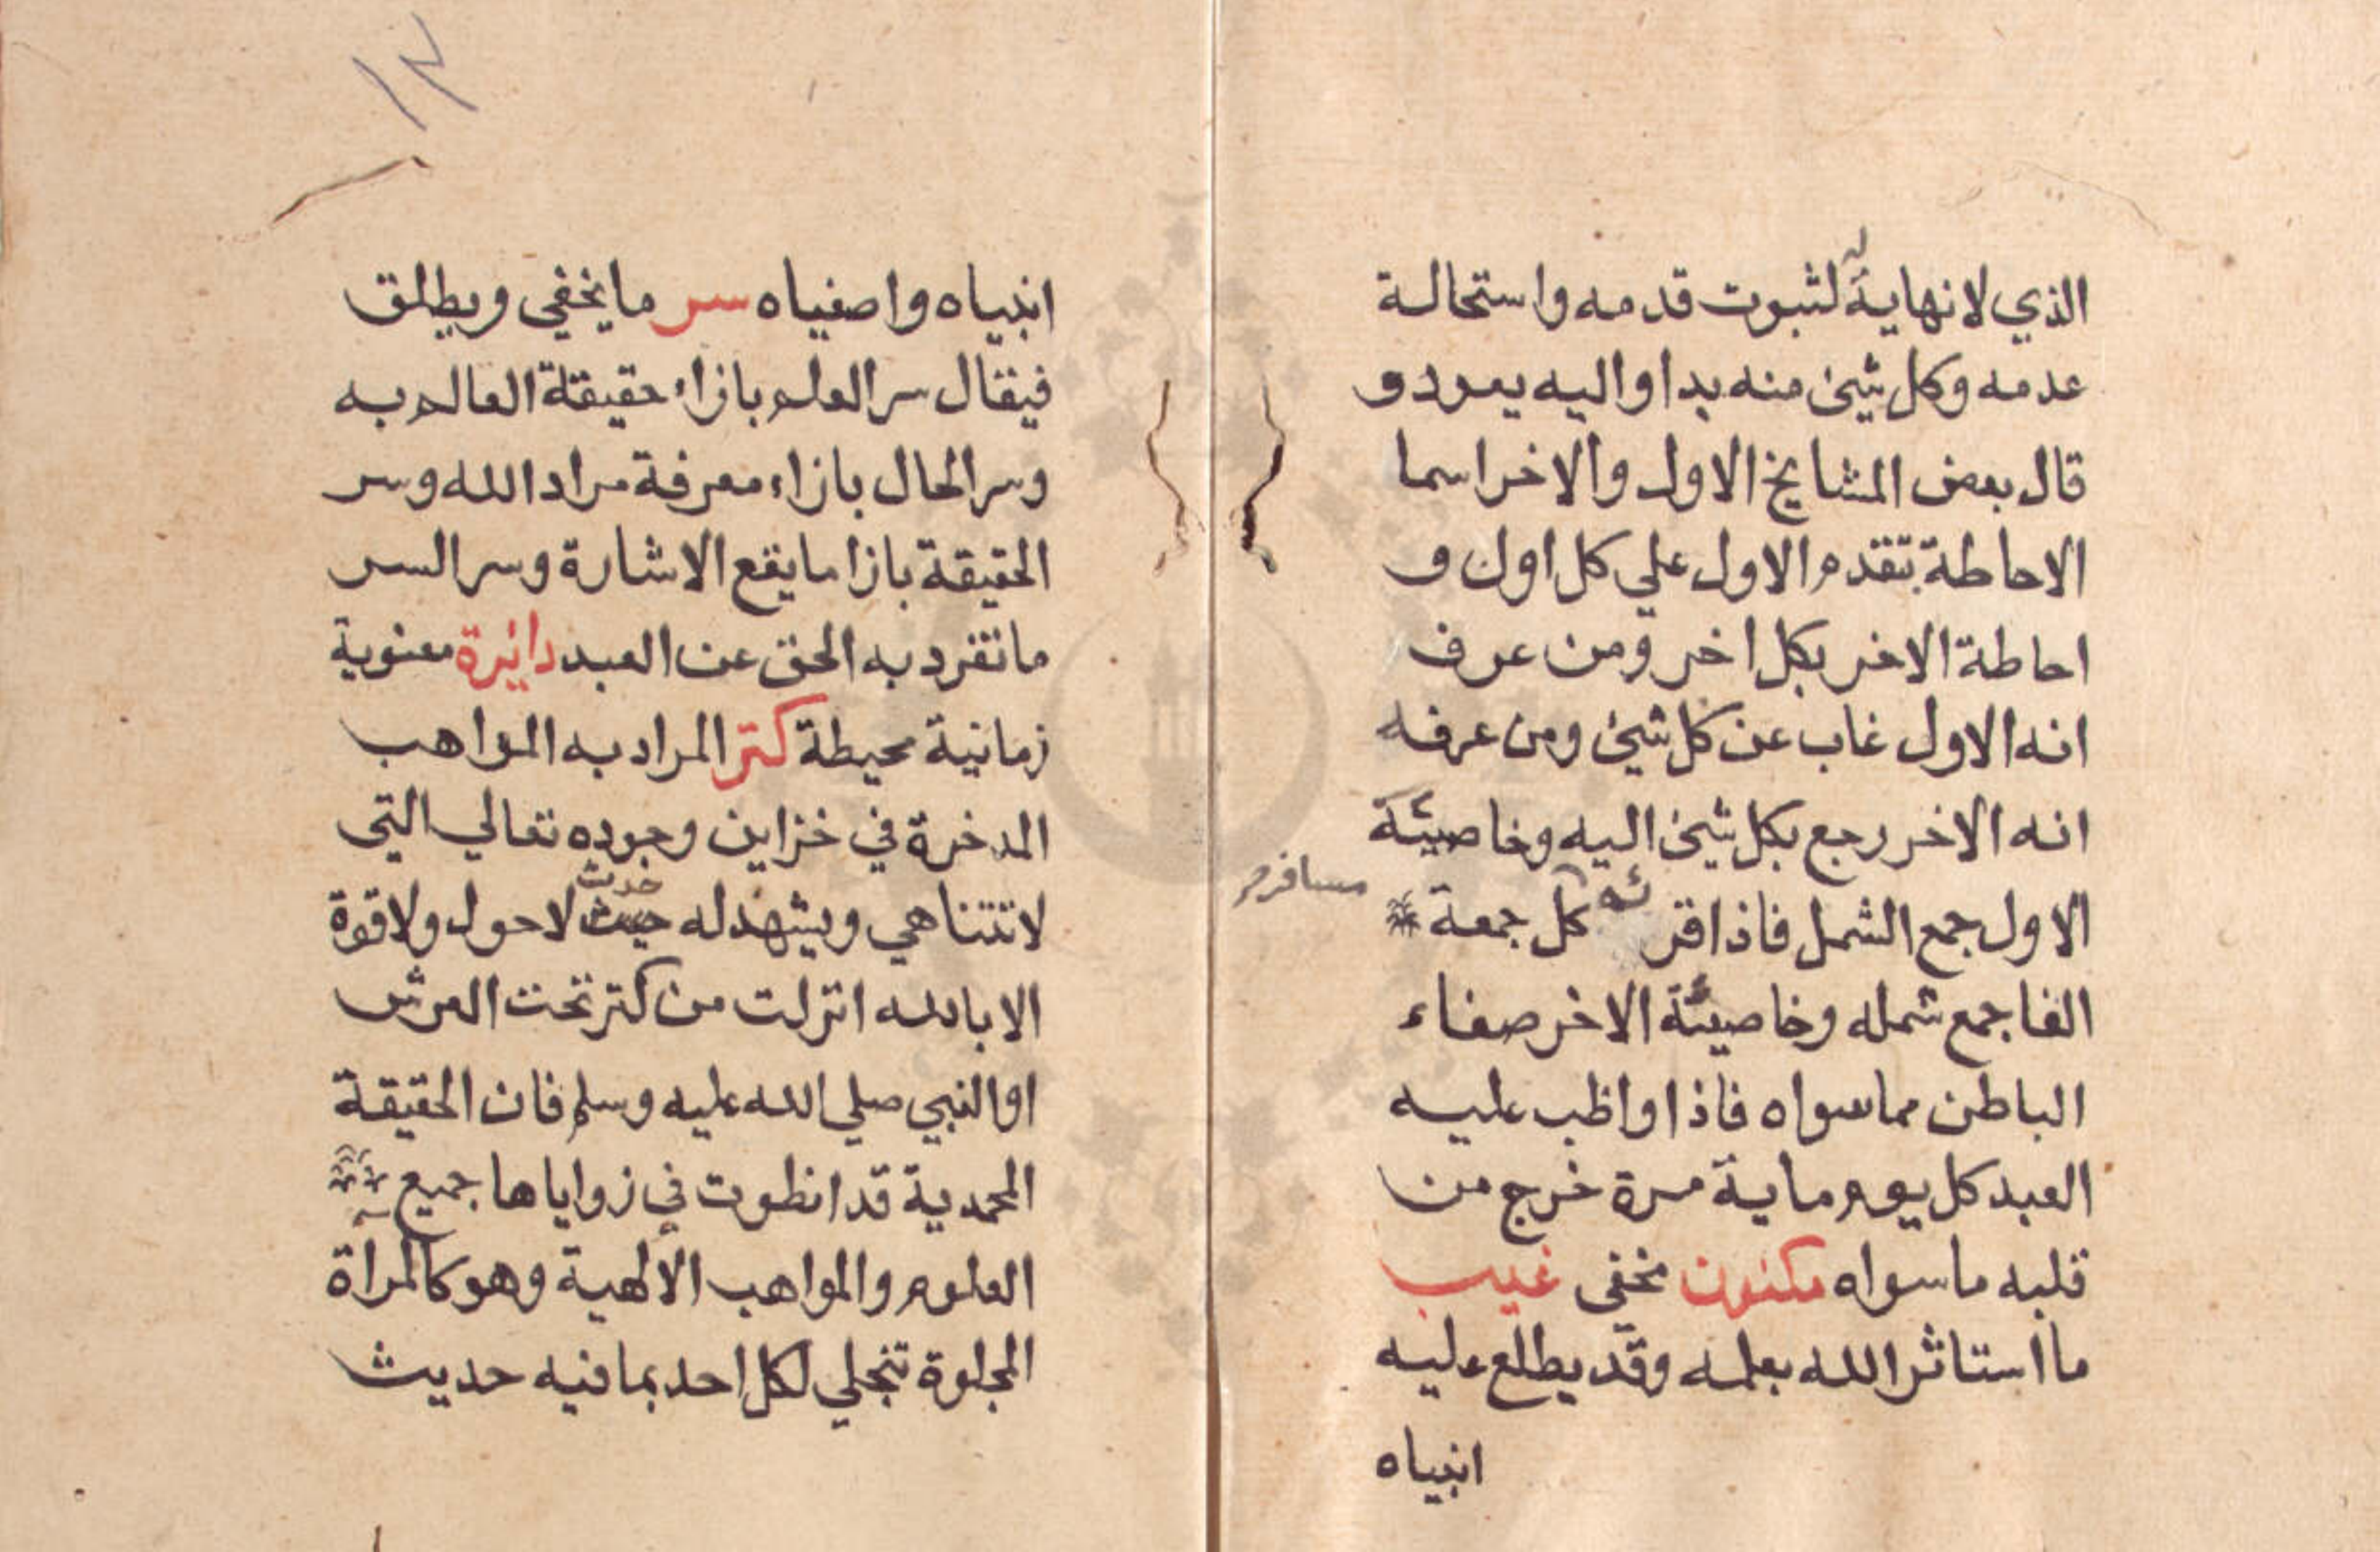 الذي لا نهاية له لثبوت قدمه واستحالة
عدمه وكل شيئ منه بدا واليه يعود و
قال بعض المشايخ الاول والاخر اسما
الاحاطة بتقدم الاول علي كل اول و
احاطة الاخر بكل اخر ومن عرف
انه الاول غاب عن كل شيئ ومن عرفه
انه الاخر رجع بكل شيئ اليه وخاصيئة
الاول جمع الشمل فاذا اقرئه كل جمعة
مسافر
الفا جمع شمله وخاصيئة الاخر صفاء
الباطن مما سواه فاذا واظب عليه
العبد كل يوم ماية مرة خرج من
قلبه ما سواه مكنون مخفي غيب
ما استاثر الله بعلمه وقد يطلع عليه
انبياه
١٢
انبياه واصفياه سر ما يخفي ويطلق
فيقال سر العلم بازاء حقيقة العالم به
وسر الحال بازاء معرفة مراد الله وسر
الحقيقة بازا ما يقع الاشارة وسر السر
ما تفرد به الحق عن العبد دائرة معنوية
زمانية محيطة كنز المراد به المواهب
المدخرة في خزاين وجوده تعالي التي
لا تتناهي ويشهد له حديث لا حول ولا قوة
الا بالله انزلت من كنز تحت العرش
او النبي صلي الله عليه وسلم فان الحقيقة
المحمدية قد انطوت في زواياها جميع
العلوم والمواهب الالهية وهو كالمرآة
المجلوة تنجلي لكل احد بما فيه حديث